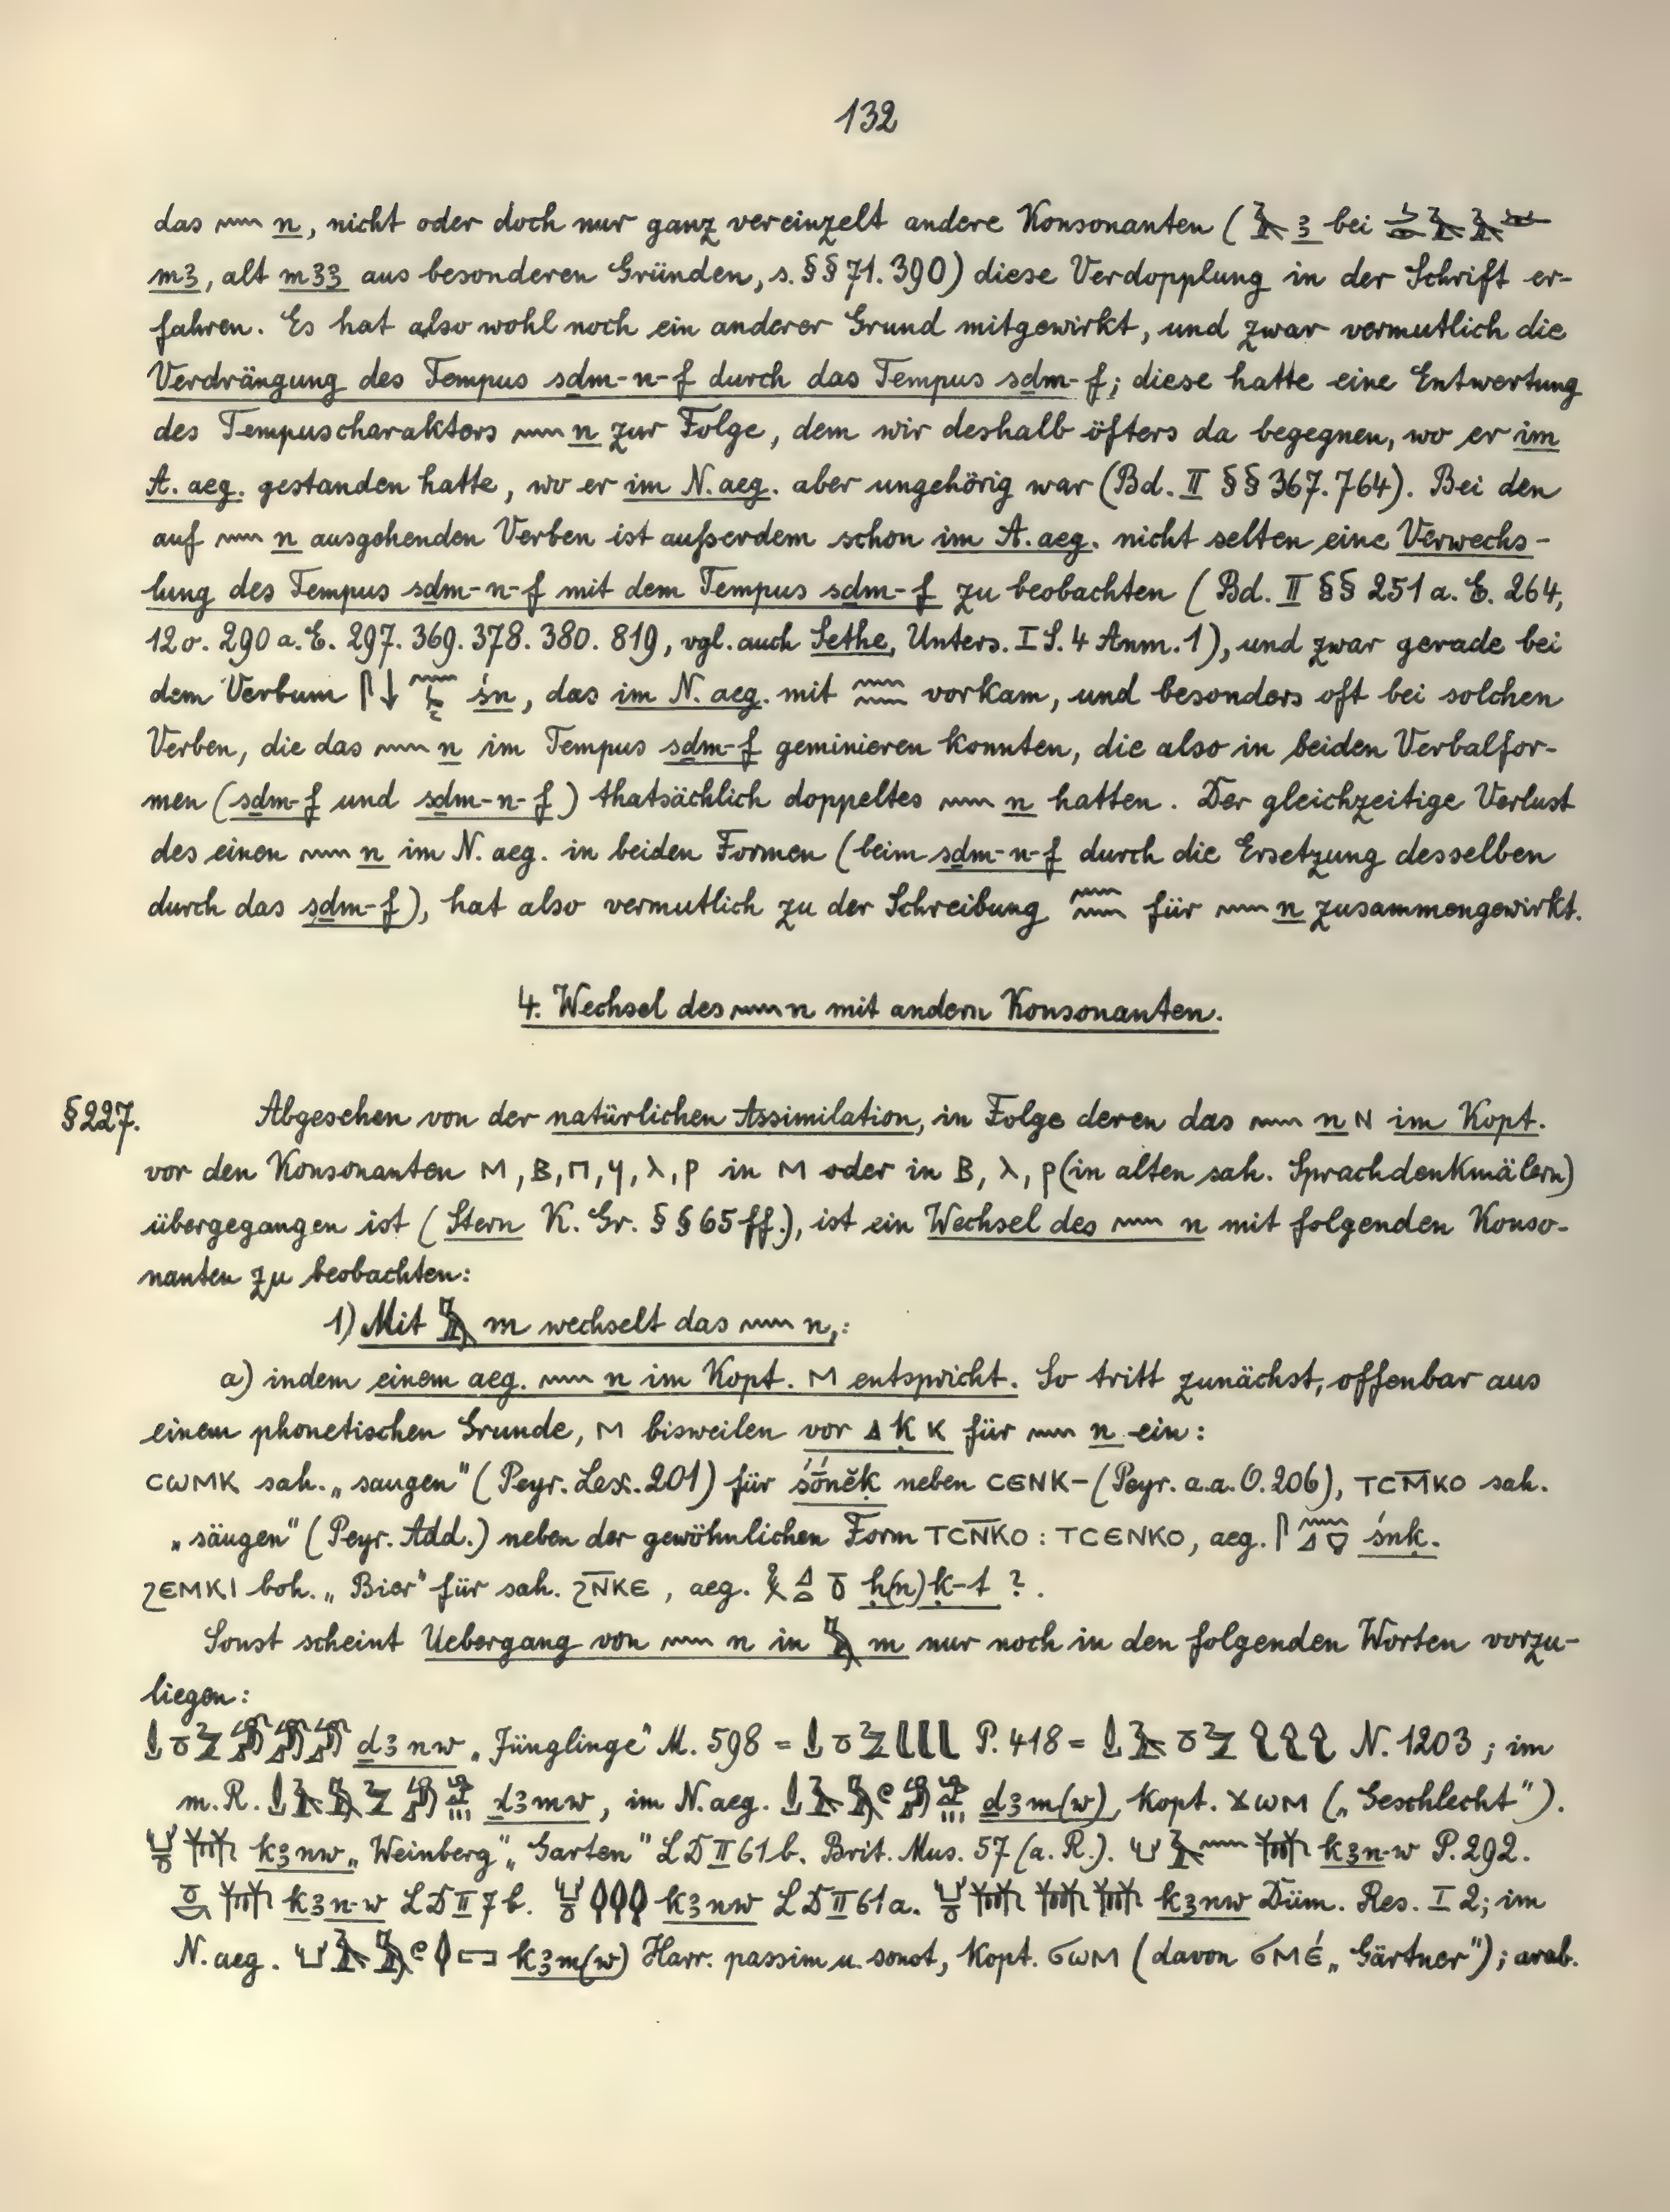 132
das 𓈖 n, nicht oder doch nur ganz vereinzelt andere Konsonanten (𓄿 ꜣ bei
mꜣ, alt mꜣꜣ aus besonderen Gründen, s. §§ 71. 390) diese Verdopplung in der Schrift er-
fahren. Es hat also wohl noch ein anderer Grund mitgewirkt, und zwar vermutlich die
Verdrängung des Tempus sḏm-n-f durch das Tempus sḏm-f; diese hatte eine Entwertung
des Tempuscharakters 𓈖 n zur Folge, dem wir deshalb öfters da begegnen, wo er im
A. aeg. gestanden hatte, wo er im N. aeg. aber ungehörig war (Bd. II §§ 367. 764). Bei den
auf 𓈖 n ausgehenden Verben ist außerdem schon im A. aeg. nicht selten eine Verwechs-
lung des Tempus sḏm-n-f mit dem Tempus sḏm-f zu beobachten (Bd. II §§ 251 a. E. 264,
12 o. 290 a. E. 297. 369. 378. 380. 819, vgl. auch Sethe, Unters. I S. 4 Anm. 1), und zwar gerade bei
dem Verbum śn, das im N. aeg. mit 𓈖𓈖 vorkam, und besonders oft bei solchen
Verben, die das 𓈖 n im Tempus sḏm-f geminieren konnten, die also in beiden Verbalfor-
men (sḏm-f und sḏm-n-f) thatsächlich doppeltes 𓈖 n hatten. Der gleichzeitige Verlust
des einen 𓈖 n im N. aeg. in beiden Formen (beim sḏm-n-f durch die Ersetzung desselben
durch das sḏm-f), hat also vermutlich zu der Schreibung 𓈖𓈖 für 𓈖 n zusammengewirkt.
4. Wechsel des 𓈖 n mit andern Konsonanten.
§ 227. Abgesehen von der natürlichen Assimilation, in Folge deren das 𓈖 n ⲛ im Kopt.
vor den Konsonanten ⲙ, ⲃ, ⲡ, ϥ, ⲗ, ⲣ in ⲙ oder in ⲃ, ⲗ, ⲣ (in alten sah. Sprachdenkmälern)
übergegangen ist (Stern K. Gr. §§ 65 ff.), ist ein Wechsel des 𓈖 n mit folgenden Konso-
nanten zu beobachten:
1) Mit 𓅓 m wechselt das 𓈖 n,:
a) indem einem aeg. 𓈖 n im Kopt. ⲙ entspricht. So tritt zunächst, offenbar aus
einem phonetischen Grunde, ⲙ bisweilen vor 𓈎 ḳ ⲕ für 𓈖 n ein:
ⲥⲱⲙⲕ sah. „saugen" (Peyr. Lex. 201) für śōněḳ neben ⲥⲉⲛⲕ- (Peyr. a. a. O. 206), ⲧⲥⲙ̅ⲕⲟ sah.
„säugen" (Peyr. Add.) neben der gewöhnlichen Form ⲧⲥⲛ̅ⲕⲟ : ⲧⲥⲉⲛⲕⲟ, aeg. śnḳ.
ϩⲉⲙⲕⲓ boh. „Bier" für sah. ϩⲛ̅ⲕⲉ, aeg. 𓎛𓈎𓏏𓏊 ḥ(n)ḳ-t ?.
Sonst scheint Uebergang von 𓈖 n in 𓅓 m nur noch in den folgenden Worten vorzu-
liegen:
ḏꜣnw „Jünglinge" M. 598 = P. 418 = N. 1203; im
m. R. ḏꜣmw, im N. aeg. ḏꜣm(w), kopt. ϫⲱⲙ („Geschlecht").
kꜣnw „Weinberg", „Garten" LD II 61 b. Brit. Mus. 57 (a. R.). kꜣn-w P. 292.
kꜣn-w LD II 7 b. kꜣnw LD II 61 a. kꜣnw Düm. Res. I 2; im
N. aeg. kꜣm(w) Harr. passim u. sonst, kopt. ϭⲱⲙ (davon ϭⲙⲉ́ „Gärtner"); arab.